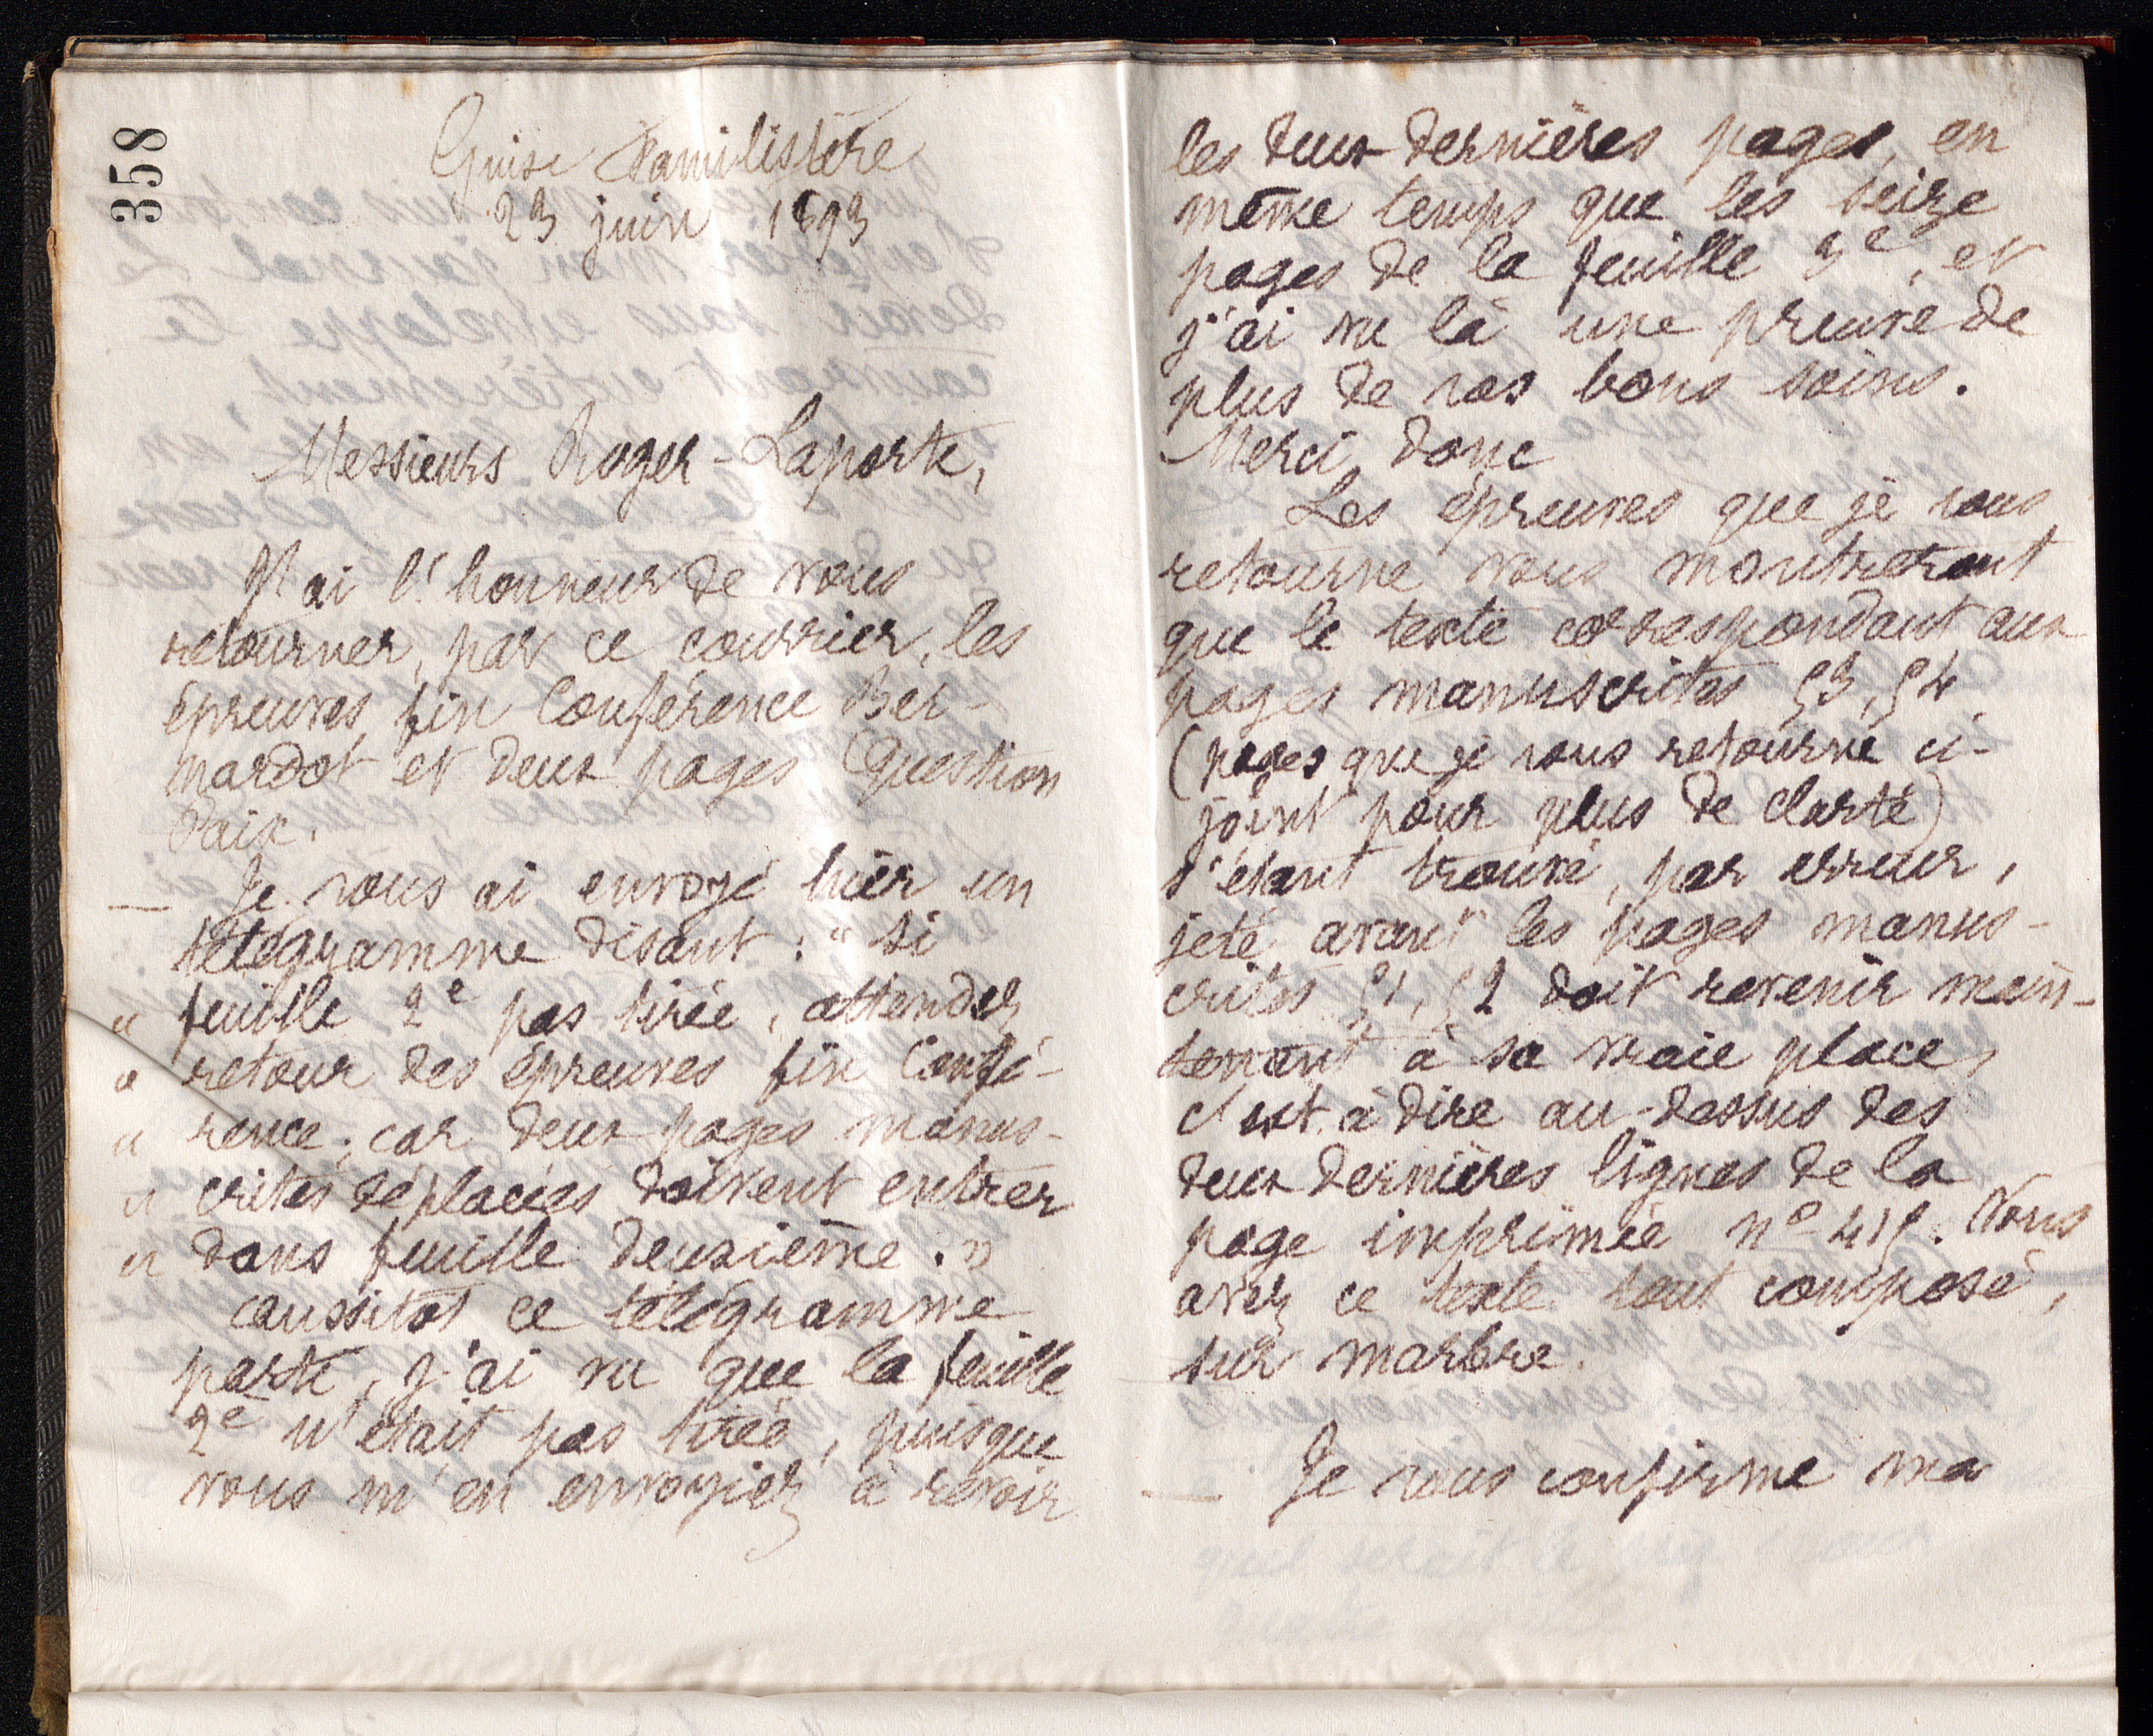 358
Guise Familistère
23 juin 1893
Messieurs Roger-Laporte,
J'ai l'honneur de vous
retourner, par ce courrier, les
épreuves fin Conférence Ber-
nardot et deux pages Question
Paix.
— Je vous ai envoyé hier un
télégramme disant : " Si
" feuille 2e pas tirée, attendez
" retour des épreuves fin Confé-
" rence ; car deux pages manus-
" crites déplacées doivent entrer
" dans feuille deuxième. "
aussitôt ce télégramme
parti, j'ai vu que la feuille
2e n'était pas tirée, puisque
vous m'en envoyiez à revoir
les deux dernières pages, en
même temps que les seize
pages de la feuille 3e, et
j'ai vu là une preuve de
plus de vos bons soins.
Merci donc
Les épreuves que je vous
retourne vous montreront
que le texte correspondant aux
pages manuscrites 53, 54
(pages que je vous retourne ci-
joint pour plus de clarté)
s'étant trouvé, par erreur,
jeté avant les pages manus-
crites 51, 52 doit revenir main-
tenant à sa vraie place,
c'est à dire au-dessus des
deux dernières lignes de la
page imprimée n° 415. Vous
avez ce texte tout composé,
sur marbre.
— Je vous confirme ma